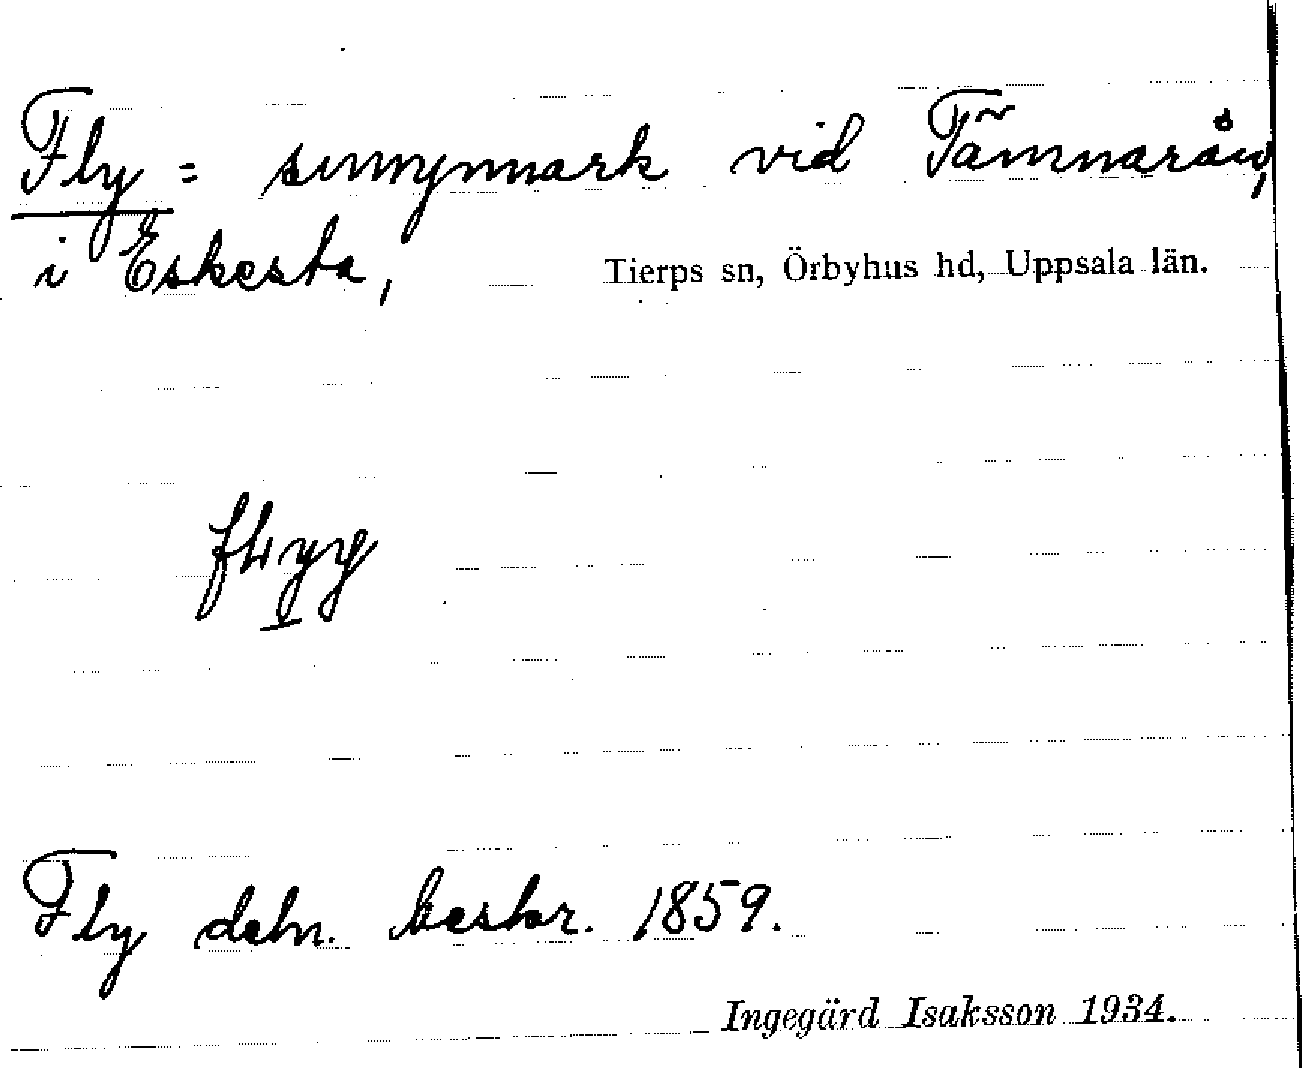 Fly = sumpmark vid Tämnarån,
i Eskesta, Tierps sn, Örbyhus hd, Uppsala län.
Fly deln. beskr. 1859.
Ingegärd Isaksson 1934.